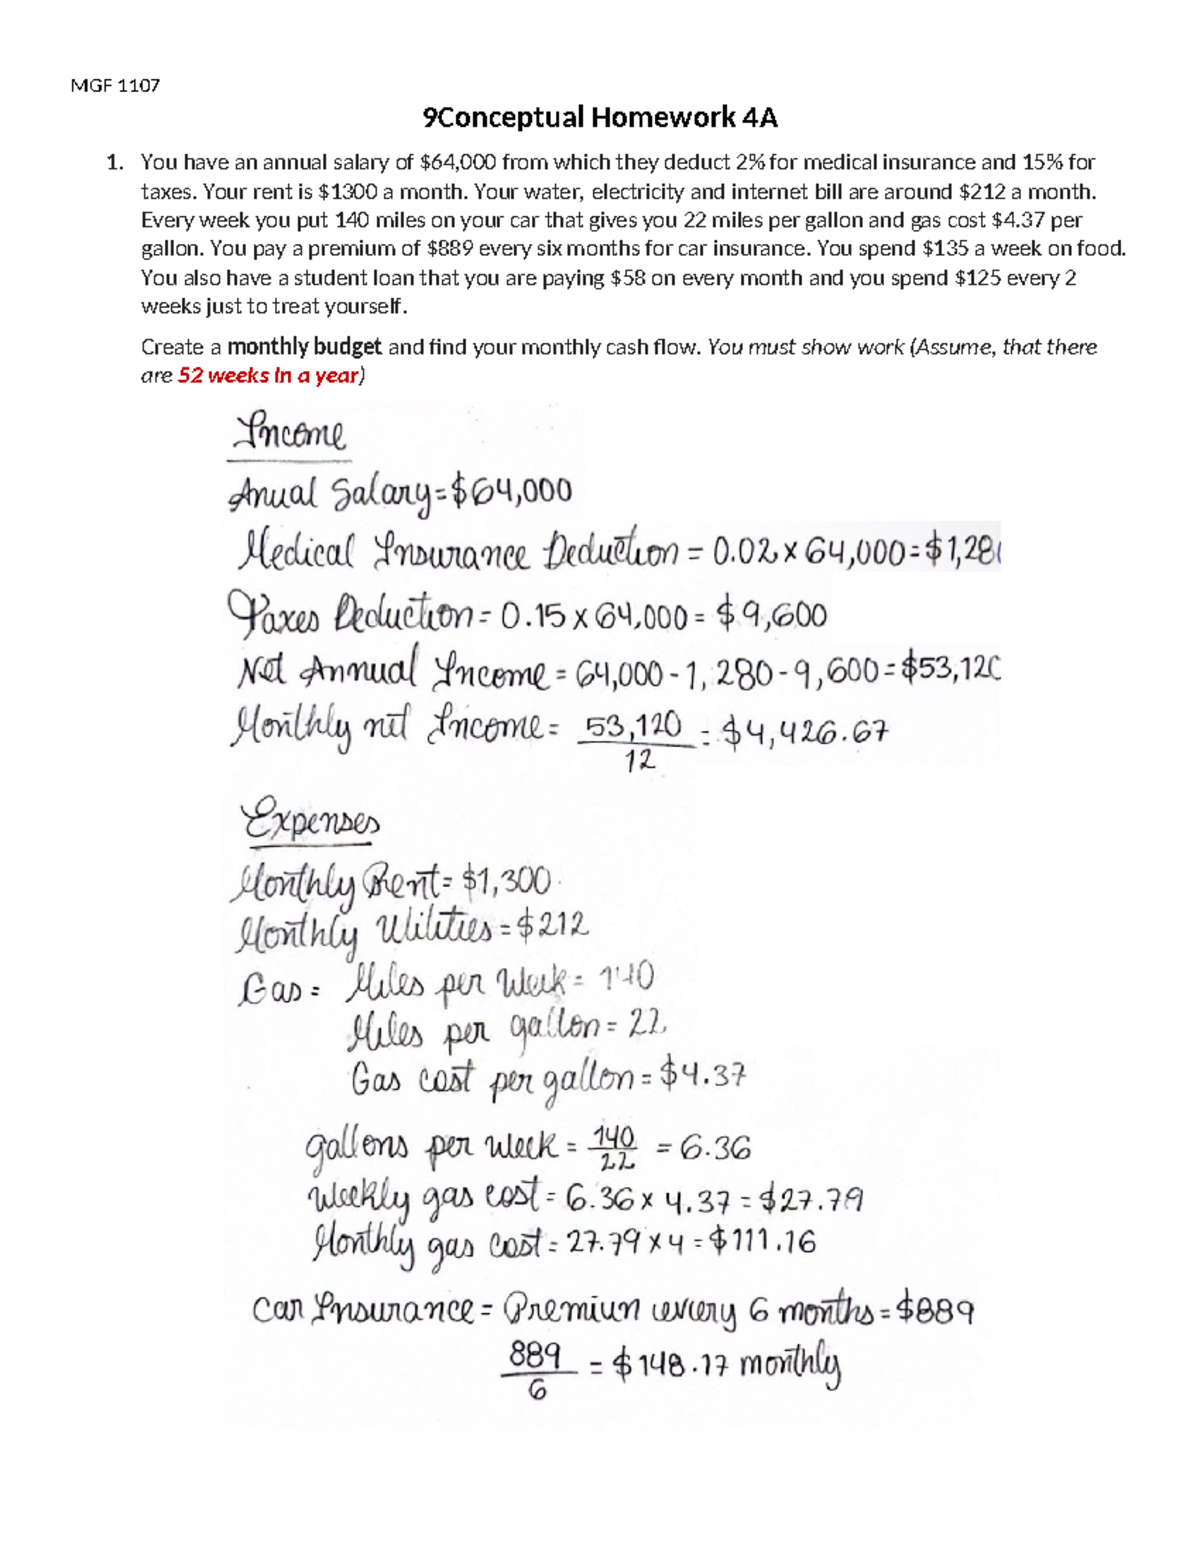 MGF 1107
9Conceptual Homework 4A
1. You have an annual salary of $64,000 from which they deduct 2% for medical insurance and 15% for
taxes. Your rent is $1300 a month. Your water, electricity and internet bill are around $212 a month.
Every week you put 140 miles on your car that gives you 22 miles per gallon and gas cost $4.37 per
gallon. You pay a premium of $889 every six months for car insurance. You spend $135 a week on food.
You also have a student loan that you are paying $58 on every month and you spend $125 every 2
weeks just to treat yourself.
Create a monthly budget and find your monthly cash flow. You must show work (Assume, that there
are 52 weeks in a year)
Income
Anual Salary=$64,000
Medical Insurance Deduction = 0.02 x 64,000=$1,28
Taxes Deduction= 0.15 x 64,000= $9,600
Net Annual Income = 64,000 - 1,280 - 9,600=$53,120
Monthly net Income= 53,120 = $4,426.67
12
Expenses
Monthly Rent= $1,300
Monthly Utilities=$212
Gas = Miles per Week= 140
Miles per gallon= 22
Gas cost per gallon=$4.37
gallons per week = 140 = 6.36
22
Weekly gas cost= 6.36 x 4.37 = $27.79
Monthly gas cost= 27.79 x 4 = $111.16
Car Insurance = Premiun every 6 months=$889
889 = $148.17 monthly
6